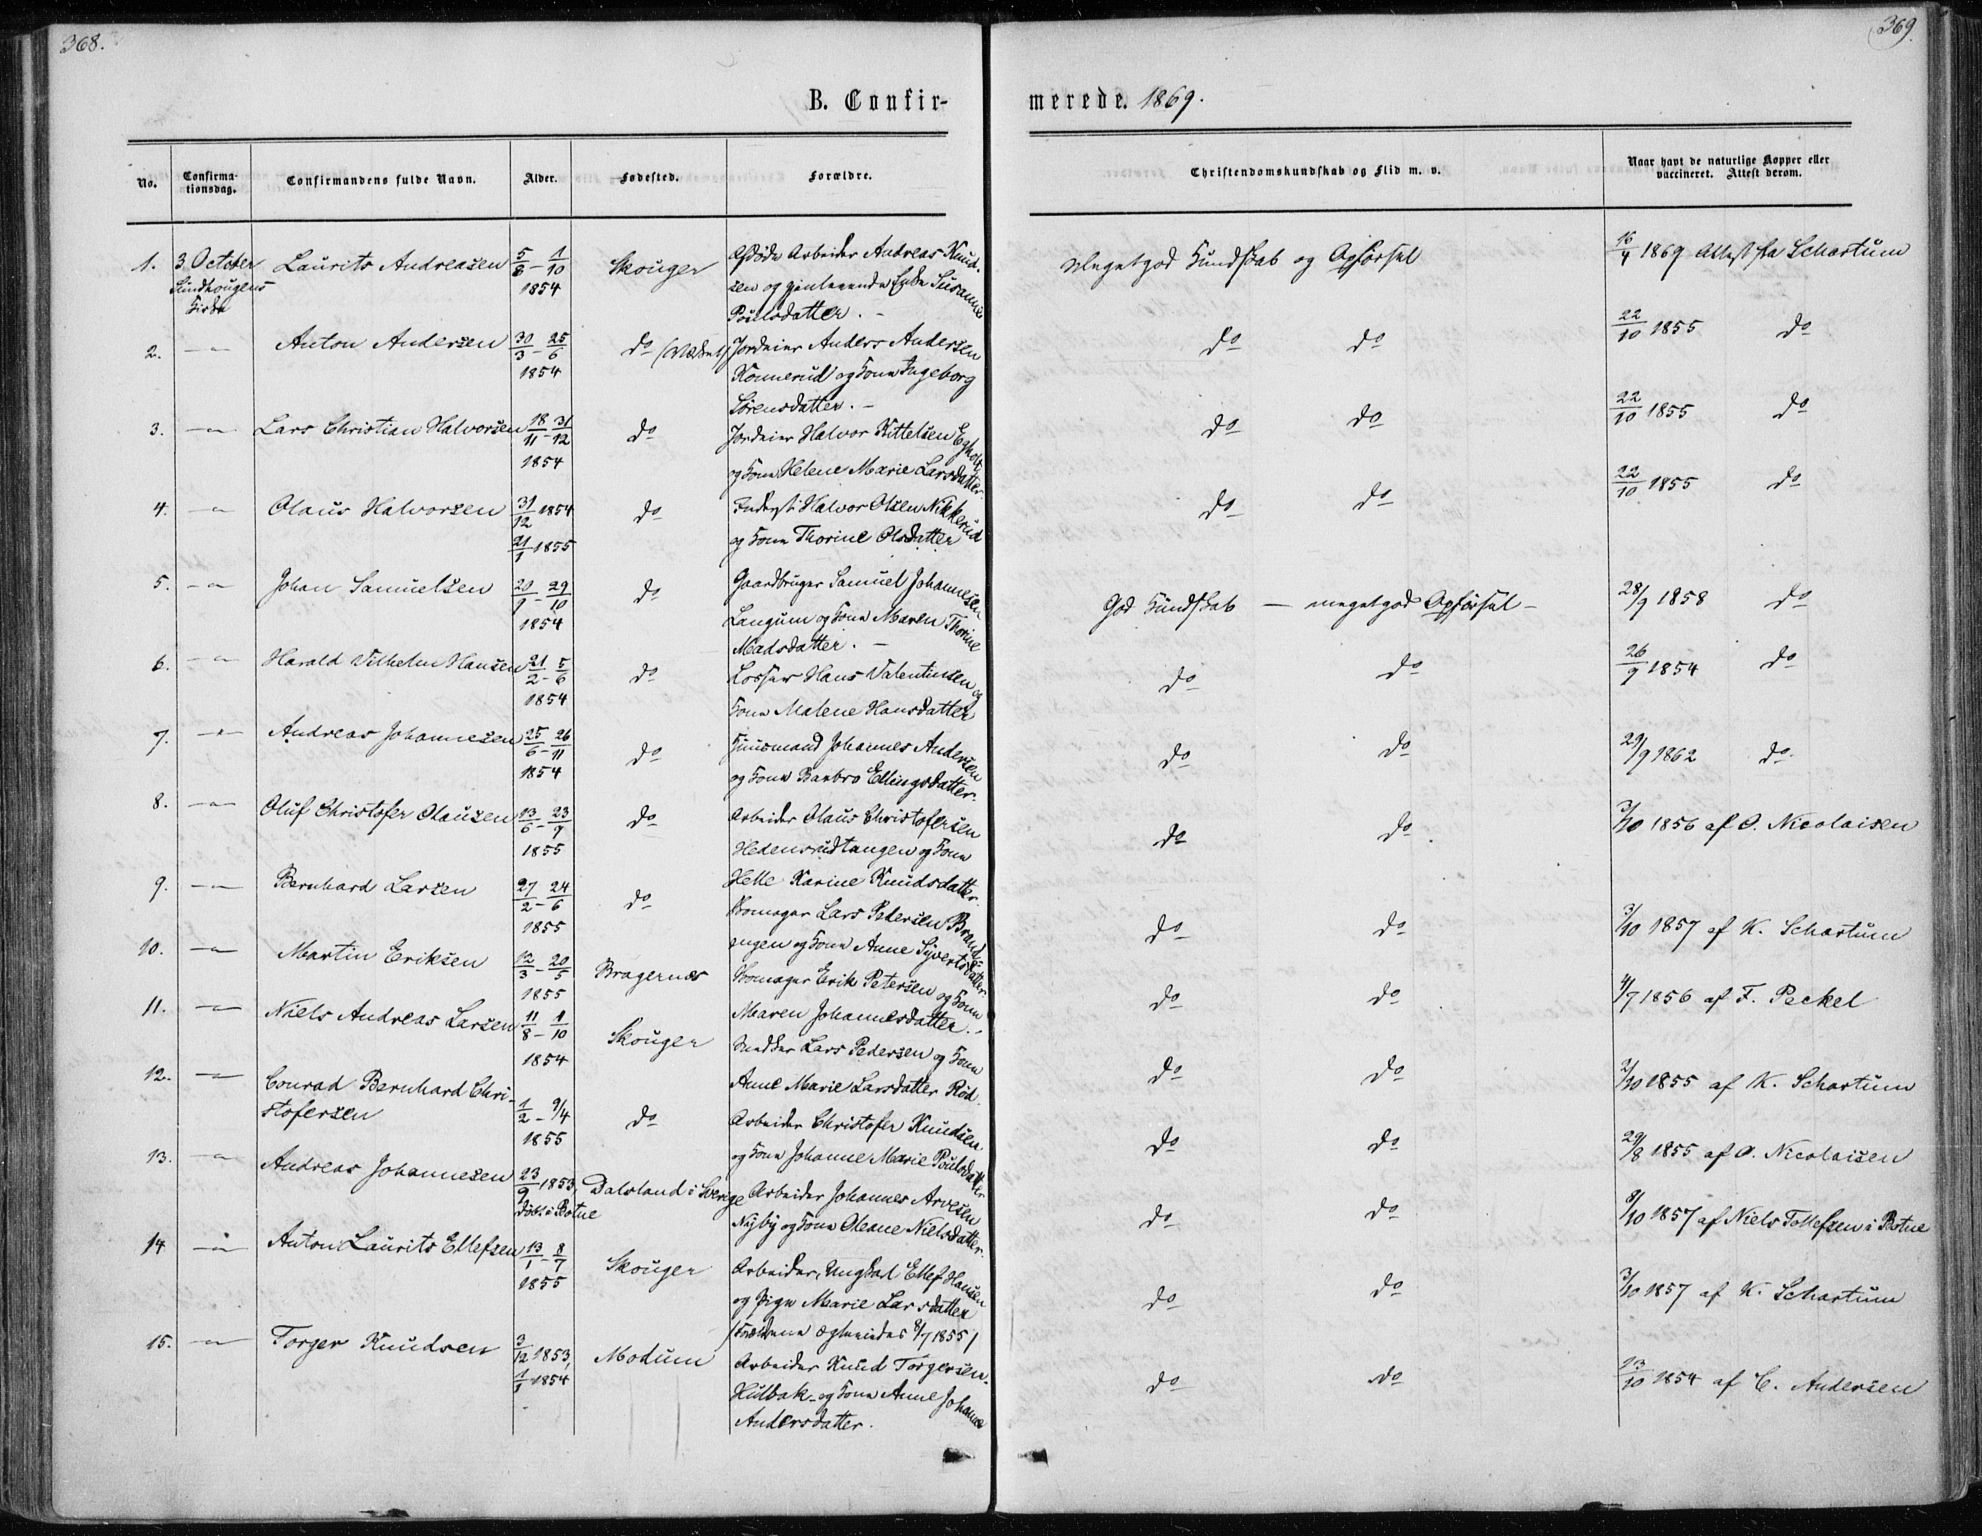 368.
369.
B. Confir-
merede. 1869.
No.
Confirma-
tionsdag.
Confirmandens fulde Navn.
Alder.
Fødested.
Forældre.
Christendomskundskab og Flid m. v.
Naar havt de naturlige Kopper eller
vaccineret. Attest derom.
1. 3 October Laurits Andreasen 5/8 - 1/10 Skouger Afdøde Arbeider Andreas Knud- Megetgod Kundskab og Opførsel 16/4 1869 Attest fra Schartum
Kirke 1854 sen og gjenlevende Enke Susanne
Poulsdatter. -
2. -"- Anton Andersen 30/3 - 25/6 do Jordeier Anders Andersen do do 22/10 1855 do
1854 Konnerud og Kone Ingeborg
Sørensdatter. -
3. -"- Lars Christian Halvorsen 18/11 - 31/12 do Jordeier Halvor Kittelsen Egholt do do 22/10 1855 do
1854 og Kone Helene Marie Larsdatter
4. -"- Olaus Halvorsen 31/12 1854 do Inderst Halvor Olsen Nikkerud do do 22/10 1855 do
21/1 1855 og Kone Thorine Olsdatter
5. -"- Johan Samuelsen 20/9 - 29/10 do Gaardbruger Samuel Johannesen God Kundskab - megetgod Opførsel - 28/9 1858 do
1854 Langum og Kone Maren Thorine
Madsdatter. -
6. -"- Harald Vilhelm Hansen 21/2 - 5/6 do Losser Hans Valentinsen og do do 26/9 1854 do
1854 Kone Malene Hansdatter
7. -"- Andreas Johannesen 25/6 - 26/11 do Huusmand Johannes Andersen do do 29/9 1862 do
1854 og Kone Barbro Ellingsdatter.
8. -"- Oluf Christofer Olausen 13/6 - 23/9 do Arbeider Olaus Christofersen do do 3/10 1856 af O. Nicolaisen
1855 Hedensrudtangen og Kone
Helle Karine Knudsdatter.
9. -"- Bernhard Larsen 27/2 - 24/6 do Lars Pedersen Brand- do do 3/10 1857 af K. Schartum
1855 engen og Kone Anne Syvertsdatter
10. -"- Martin Eriksen 12/3 - 20/5 Bragernæs Erik Petersen og Kone do do 4/7 1856 af F. Peckel
1855 Maren Johannesdatter. -
11. -"- Niels Andreas Larsen 11/8 - 1/10 Skouger Snedker Lars Pedersen og Kone do do 2/10 1855 af K. Schartum
1854 Anne Marie Larsdatter Rød.
12. -"- Conrad Bernhard Chri-
stofersen 1/2 - 9/4 do Arbeider Christofer Knudsen do do 29/8 1855 af O. Nicolaisen
1855 og Kone Johanne Marie Poulsdatter
13. -"- Andreas Johannesen 23/9 1853, Dalsland i Sverige Arbeider Johannes Arvesen do do 8/10 1857 af Niels Tollefsen i Botne
døbt i Botne Nyby og Kone Oleane Nielsdatter.
14 -"- Anton Laurits Ellefsen 13/1 - 8/7 Skouger Arbeider, Ungkarl Ellef Hansen do do 3/10 1857 af K. Schartum
1855 og Pige Marie Larsdatter
(Forældrene ægteviedes 8/7 1855)
15. -"- Torger Knudsen 3/12 1853, Modum Arbeider Knud Torgersen do do 13/10 1854 af C. Andersen
1/1 1854 Hulbak og Kone Anne Johanne
Andersdatter.